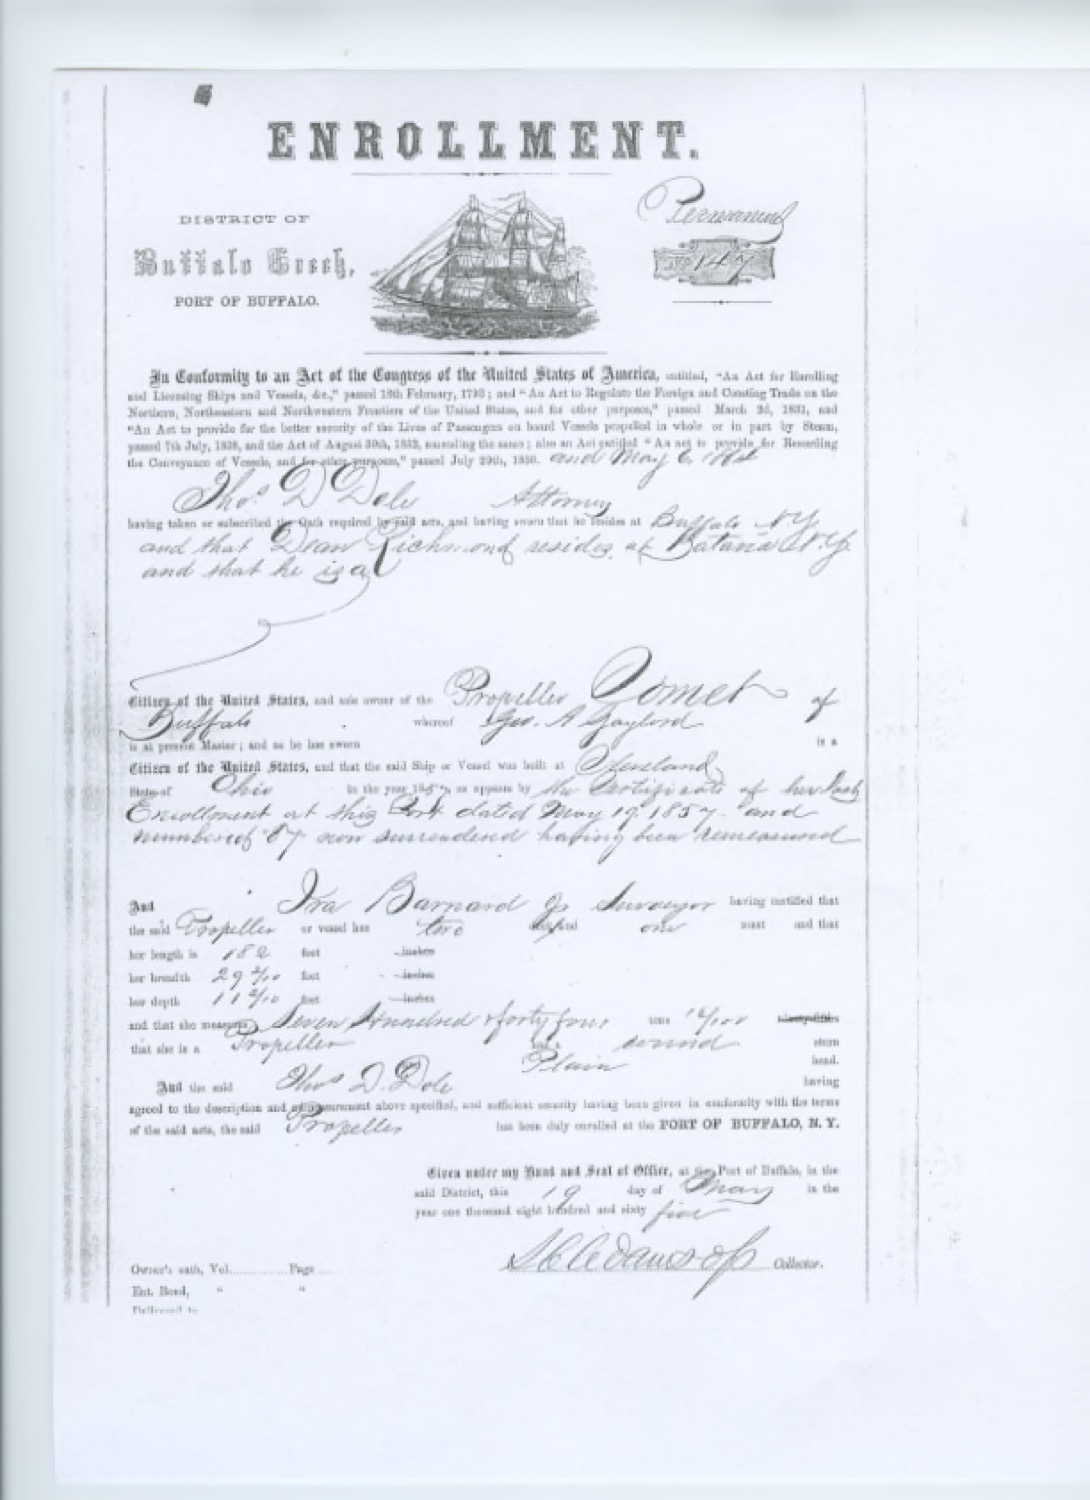 ENROLLMENT.
DISTRICT OF
Buffalo Creek,
PORT OF BUFFALO.
Permanent
No. 147
In Conformity to an Act of the Congress of the United States of America, entitled, "An Act for Enrolling
and Licensing Ships and Vessels, &c.," passed 18th February, 1793; and "An Act to Regulate the Foreign and Coasting Trade on the
Northern, Northeastern and Northwestern Frontiers of the United States, and for other purposes," passed March 2d, 1831, and
"An Act to provide for the better security of the Lives of Passengers on board Vessels propelled in whole or in part by Steam,
passed 7th July, 1838, and the Act of August 30th, 1852, amending the same; also an Act entitled "An act to provide for Recording
the Conveyance of Vessels, and for other purposes," passed July 29th, 1850. and May 6 1864
Thos D Dole Attorney
having taken or subscribed the Oath required by said acts, and having sworn that he resides at Buffalo NY
and that Dean Richmond resides at Batavia N.Y.
and that he is a
Citizen of the United States, and sole owner of the Propeller Comet of
Buffalo whereof Geo. A Gaylord
is at present Master; and as he has sworn is a
Citizen of the United States, and that the said Ship or Vessel was built at Cleveland
State of Ohio in the year 1857 as appears by the Certificate of her last
Enrollment at this Port dated May 19 1857 and
numbered 87 now surrendered having been remeasured
And Ira Barnard Jr Surveyor having certified that
the said Propeller or vessel has two deck and one mast and that
her length is 182 feet inches
her breadth 29 2/10 feet inches
her depth 11 2/10 feet inches
and that she measures Seven Hundred & forty four tons ninety-fifths
that she is a Propeller has a round stern
Plain head.
And the said Thos D. Dole having
agreed to the description and admeasurement above specified, and sufficient security having been given in conformity with the terms
of the said acts, the said Propeller has been duly enrolled at the PORT OF BUFFALO, N. Y.
Given under my Hand and Seal of Office, at the Port of Buffalo, in the
said District, this 19 day of May in the
year one thousand eight hundred and sixty five
Collector.
Owner's oath, Vol. Page
Ent. Bond, " "
Delivered to